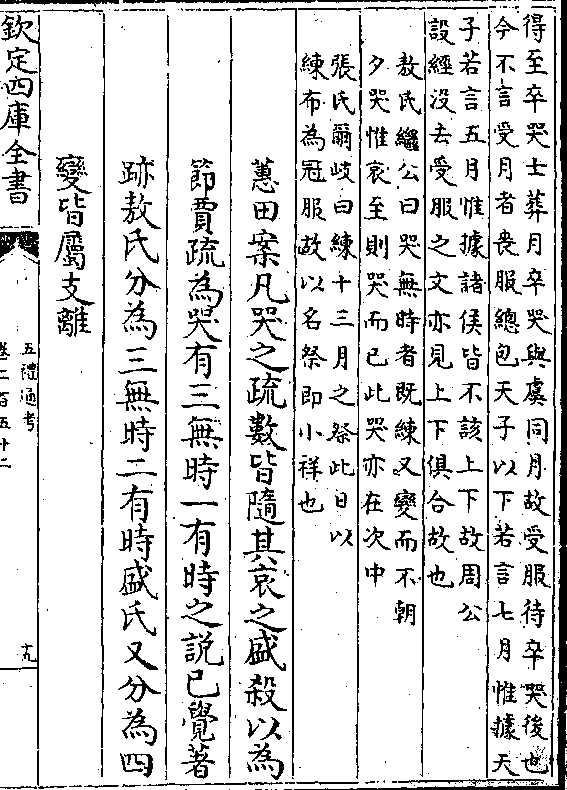 得至卒哭士葬月卒哭與虞同月故受服待卒哭後也
今不言受月者喪服總包天子以下若言七月惟據天
子若言五月惟據諸侯皆不該上下故周公
設經没去受服之文亦見上下俱合故也
敖氏繼公曰哭無時者既練又變而不朝
夕哭惟哀至則哭而已此哭亦在次中
張氏爾岐曰練十三月之祭此日以
練布為冠服故以名祭即小祥也
蕙田案凡哭之疏數皆隨其哀之盛殺以為
節賈疏為哭有三無時一有時之説已覺著
跡敖氏分為三無時二有時盛氏又分為四
變皆屬支離
欽定四庫全書
五禮通考
卷二百五十二
十九